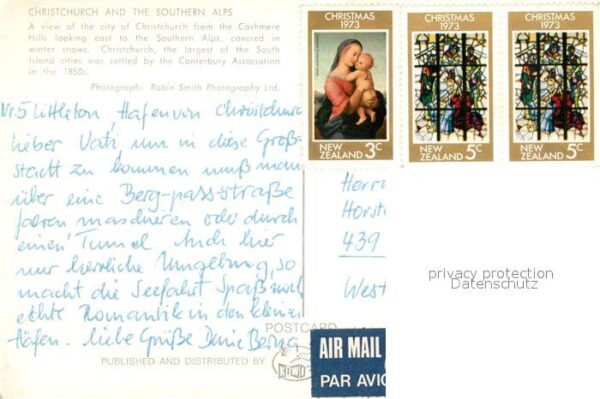 CHRISTCHURCH AND THE SOUTHERN ALPS
A view of the city of Christchurch from the Cashmere
Hills looking east to the Southern Alps, covered in
winter snows. Christchurch, the largest of the South
Island cities was settled by the Canterbury Association
in the 1850s.
Photograph: Robin Smith Photography Ltd.
Nr 5 Littleton, Hafen von Christchurch
lieber Vati, um in diese Groß-
stadt zu kommen muß man
über eine Berg-passstraße
fahren marschieren oder durch
einen Tunnel. Auch hier
nur herrliche Umgebung, so
macht die Seefahrt Spaß noch
echte Romantik in den kleinen
Häfen. liebe Grüße Deine
POSTCARD
PUBLISHED AND DISTRIBUTED BY
CHRISTMAS
1973
NEW
ZEALAND 3c
CHRISTMAS
1973
NEW
ZEALAND 5c
CHRISTMAS
1973
NEW
ZEALAND 5c
Herrn
Horst
439
West
privacy protection
Datenschutz
AIR MAIL
PAR AVIO